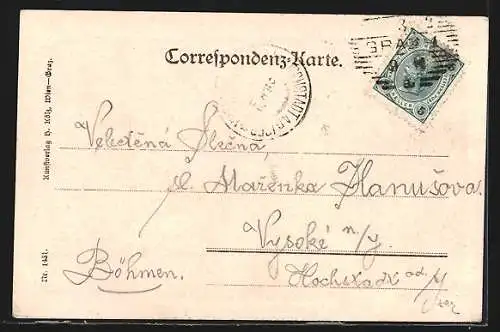 Correspondenz-Karte.
GRAZ
Velectěná Slečna,
sl. Mařenka Hanušova
Vysoké n/J.
Hochstadt
Böhmen.
Kunstverlag H. Kölz, Wien-Graz.
Nr. 1431.